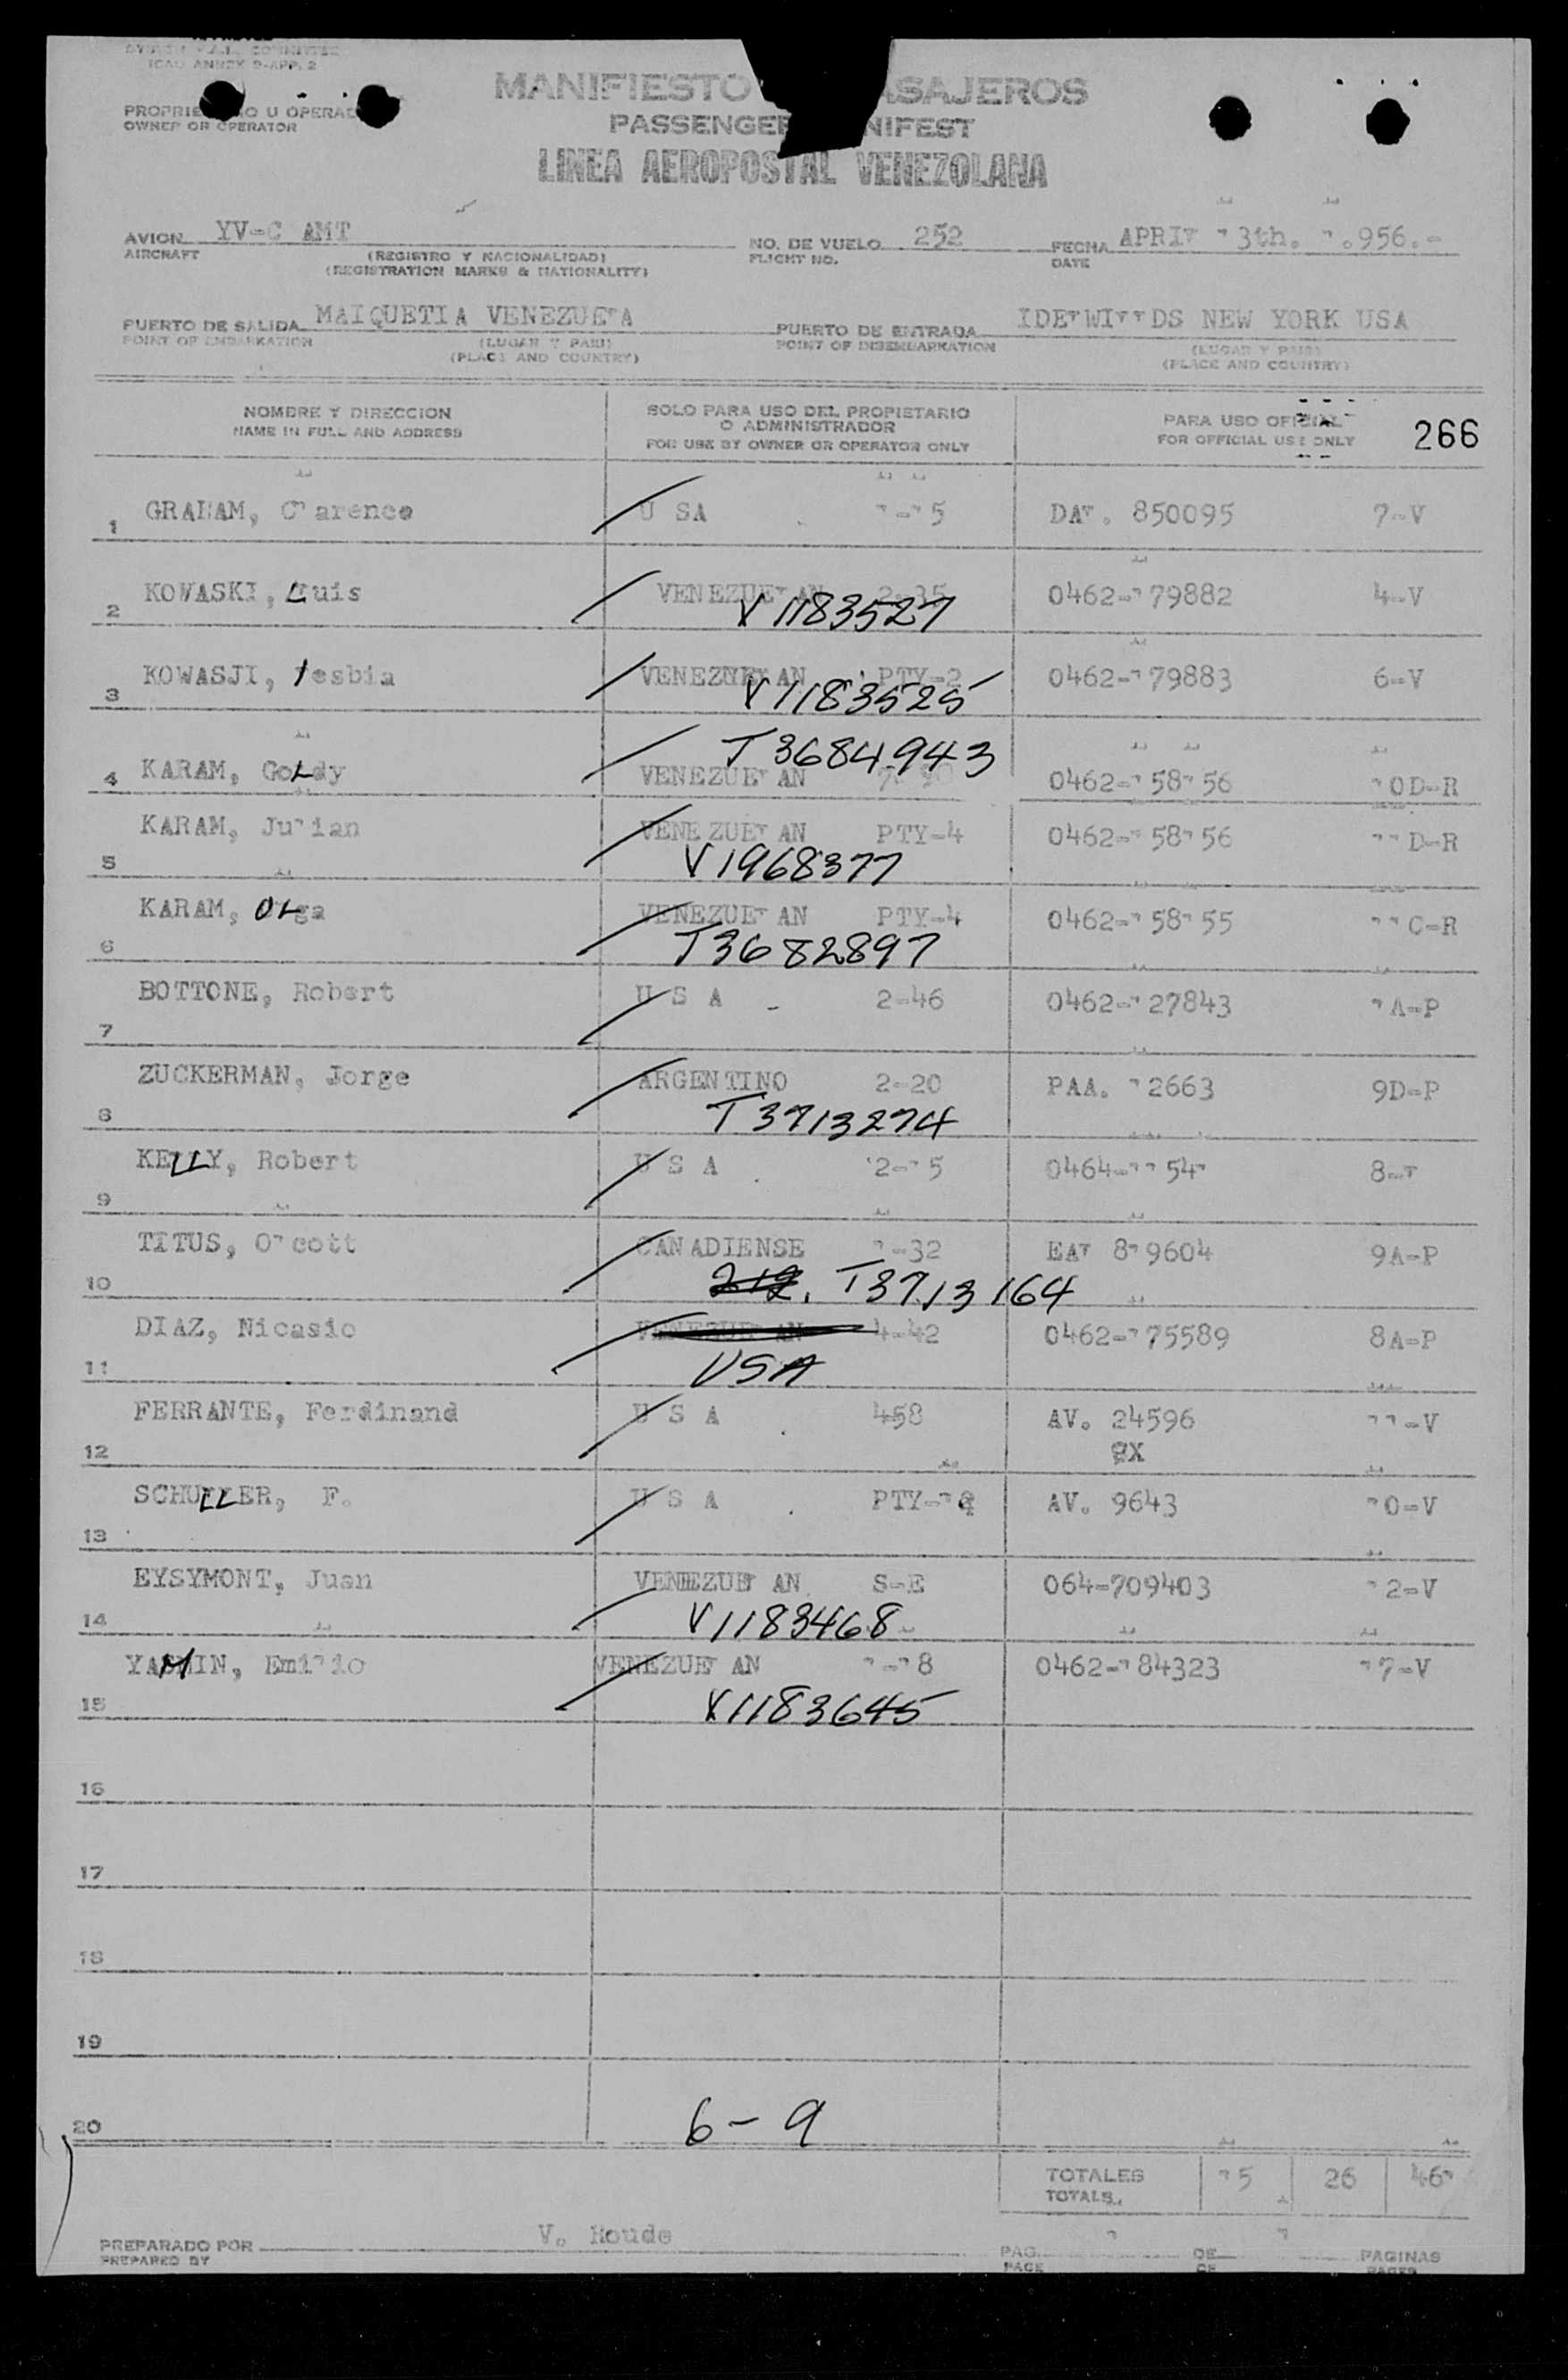 ICAO ANNEX 9-APP. 2
MANIFIESTO ASAJEROS
PROPRIE O U OPERAD
OWNER OR OPERATOR
PASSENGER NIFEST
LINEA AEROPOSTAL VENEZOLANA
AVION YV-C AMT NO. DE VUELO 252 FECHA APRI 3th. .956.-
AIRCRAFT (REGISTRO Y NACIONALIDAD) FLIGHT NO. DATE
(REGISTRATION MARKS & NATIONALITY)
PUERTO DE SALIDA MAIQUETIA VENEZUE A PUERTO DE ENTRADA IDE WI DS NEW YORK USA
POINT OF EMBARKATION (LUGAR Y PAIS) POINT OF DISEMBARKATION (LUGAR Y PAIS)
(PLACE AND COUNTRY) (PLACE AND COUNTRY)
NOMBRE Y DIRECCION SOLO PARA USO DEL PROPIETARIO PARA USO OFICIAL
NAME IN FULL AND ADDRESS O ADMINISTRADOR FOR OFFICIAL USE ONLY 266
FOR USE BY OWNER OR OPERATOR ONLY
1 GRAHAM, C arence U SA - 5 DA . 850095 7-V
2 KOWASKI, Luis VENEZUE AN 2-35 0462- 79882 4-V
V 1183527
3 KOWASJI, lesbia VENEZUE AN PTY-2 0462- 79883 6-V
V 1183525
T 3684943
4 KARAM, GoLdy VENEZUE AN 0462- 58 56 0D-R
5 KARAM, Ju ian VENEZUE AN PTY-4 0462- 58 56 D-R
V 1968377
6 KARAM, OLga VENEZUE AN PTY-4 0462- 58 55 C-R
T 3682897
7 BOTTONE, Robert U S A - 2-46 0462- 27843 A-P
8 ZUCKERMAN, Jorge ARGENTINO 2-20 PAA. 2663 9D-P
T 3713274
9 KELLY, Robert U S A 2- 5 0464- 54 8-
10 TITUS, O cott CANADIENSE -32 EA 8 9604 9A-P
212. T3713164
11 DIAZ, Nicasio VENEZUE AN 4-42 0462- 75589 8A-P
USA
12 FERRANTE, Ferdinand U S A 458 AV. 24596 -V
13 SCHULLER, F. U S A PTY- AV. 9643 0-V
14 EYSYMONT, Juan VENEZUE AN S-E 064-709403 2-V
V 1183468
15 YAMIN, Emi io VENEZUE AN - 8 0462- 84323 7-V
V1183645
16
17
18
19
20
6-9
TOTALES 5 26 46
TOTALS
PREPARADO POR V. Houde
PREPARED BY
PAG. DE PAGINAS
PAGE OF PAGES